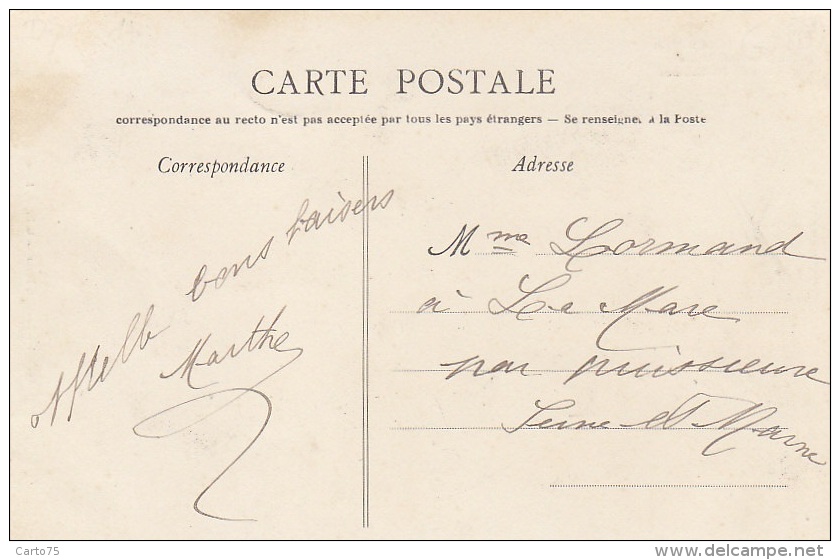 CARTE POSTALE
correspondance au recto n'est pas acceptée par tous les pays étrangers — Se renseigner à la Poste
Correspondance
Adresse
bons baisers
Marthe
Mme Lormand
à La Mare
par puissieux
Seine et Marne
Carto75
www.delcampe.net